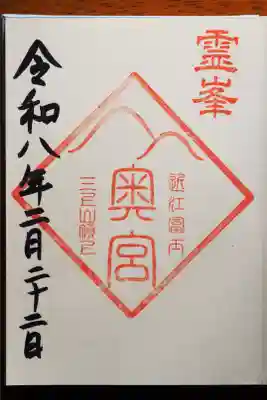 霊峯
近江富士
奥宮
三上山頂上
令和八年二月二十二日